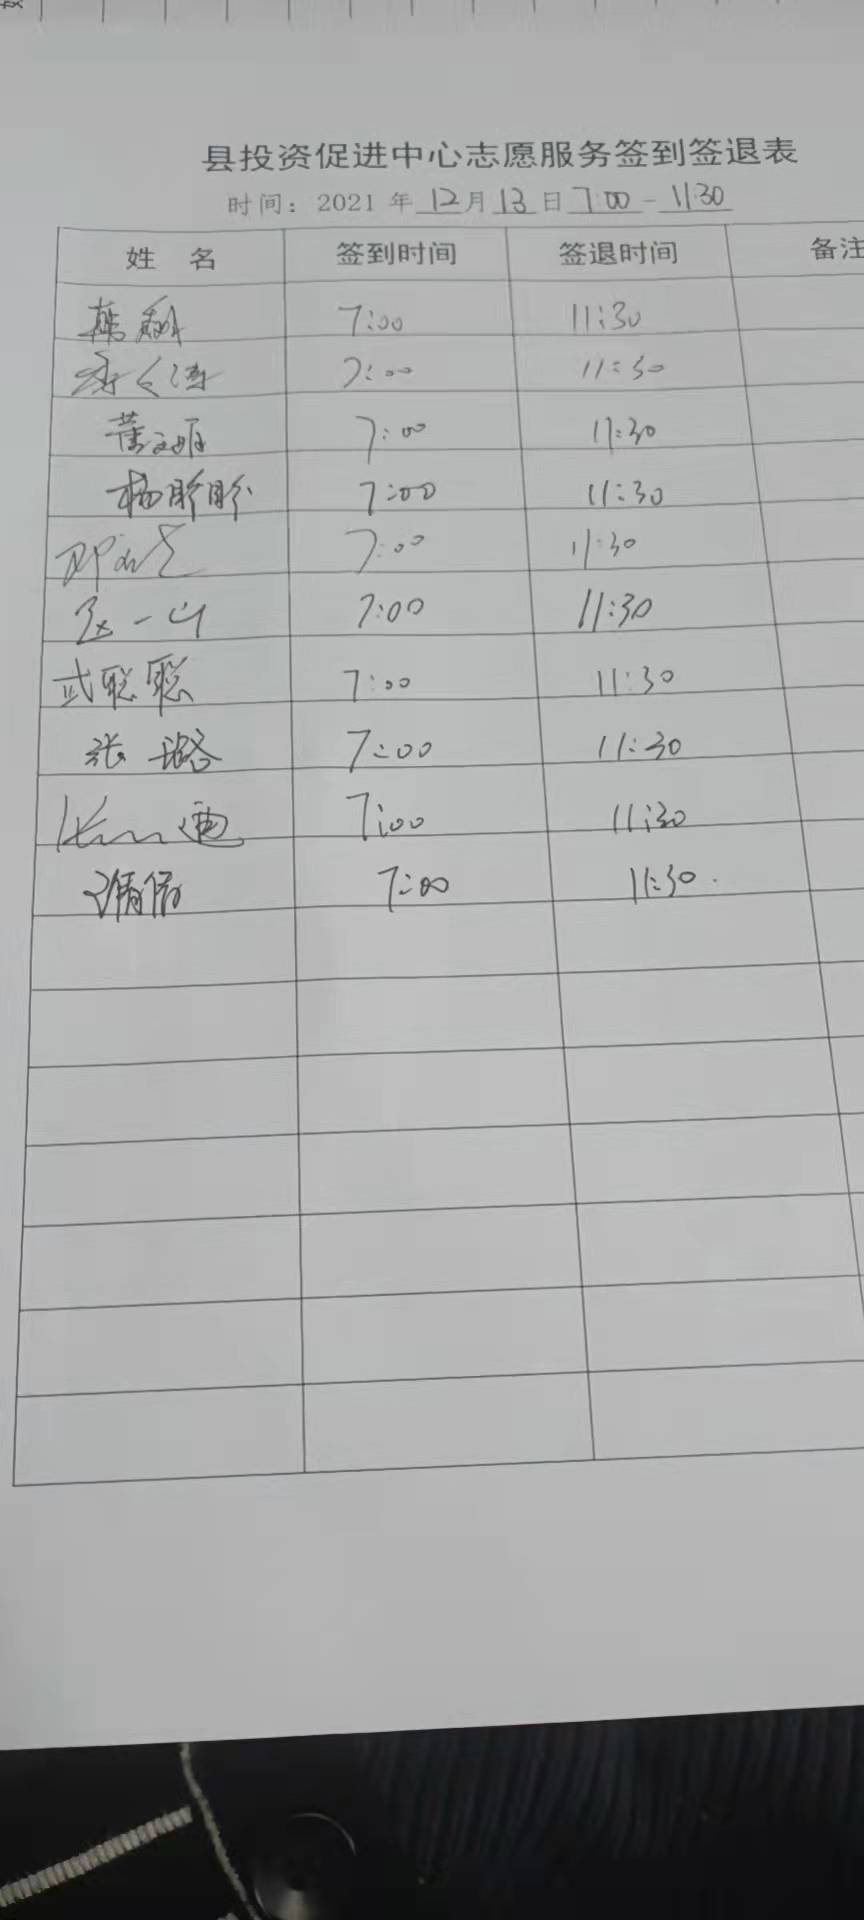 县投资促进中心志愿服务签到签退表
时间：2021年12月13日7:00-11:30
姓 名 签到时间 签退时间 备注
韩 7:00 11:30
7:00 11:30
董文娅 7:00 11:30
杨盼盼 7:00 11:30
7:00 11:30
张一山 7:00 11:30
武聪聪 7:00 11:30
张璐 7:00 11:30
迪 7:00 11:30
7:00 11:30